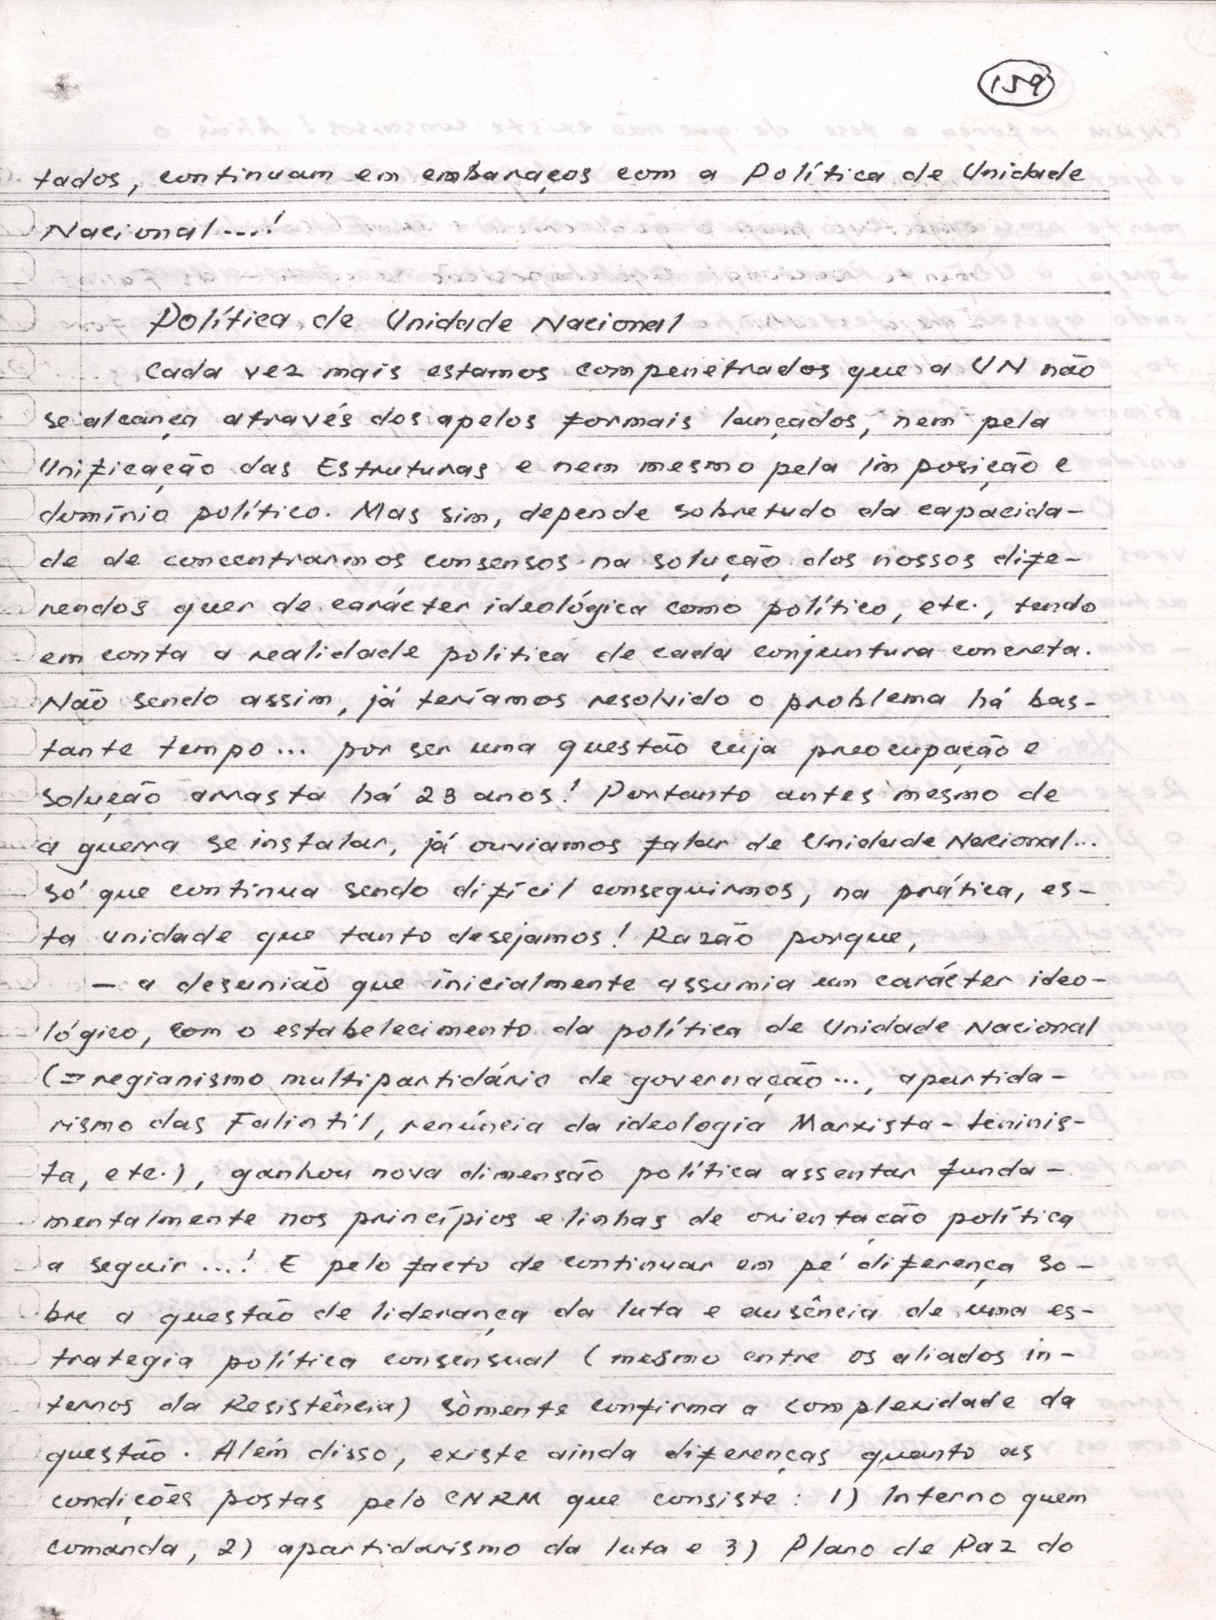 159
tados, continuam em embaraços com a Política de Unidade
Nacional...!
Política de Unidade Nacional
Cada vez mais estamos compenetrados que a UN não
se alcança através dos apelos formais lançados, nem pela
Unificação das Estruturas e nem mesmo pela imposição e
domínio político. Mas sim, depende sobretudo da capacida-
de de concentrarmos consensos na solução dos nossos dife-
rendos quer de carácter ideológica como político, etc., tendo
em conta a realidade politica de cada conjuntura concreta.
Não sendo assim, já teríamos resolvido o problema há bas-
tante tempo... por ser uma questão cuja preocupação e
solução arrasta há 23 anos! Portanto antes mesmo de
a guerra se instalar, já ouviamos falar de Unidade Nacional...
só que continua sendo difícil conseguirmos, na prática, es-
ta unidade que tanto desejamos! Razão porque,
- a desunião que inicialmente assumia um carácter ideo-
lógico, com o estabelecimento da política de Unidade Nacional
(= regianismo multipartidário de governação..., apartida-
rismo das Falintil, renúncia da ideologia Marxista-leninis-
ta, etc.), ganhou nova dimensão política assentar funda-
mentalmente nos princípios e linhas de orientação política
a seguir...! E pelo facto de continuar em pé diferença so-
bre a questão de liderança da luta e ausência de uma es-
trategia política consensual (mesmo entre os aliados in-
ternos da Resistência) sòmente confirma a complexidade da
questão. Além disso, existe ainda diferenças quanto as
condições postas pelo CNRM que consiste: 1) Interno quem
comanda, 2) apartidarismo da luta e 3) Plano de Paz do